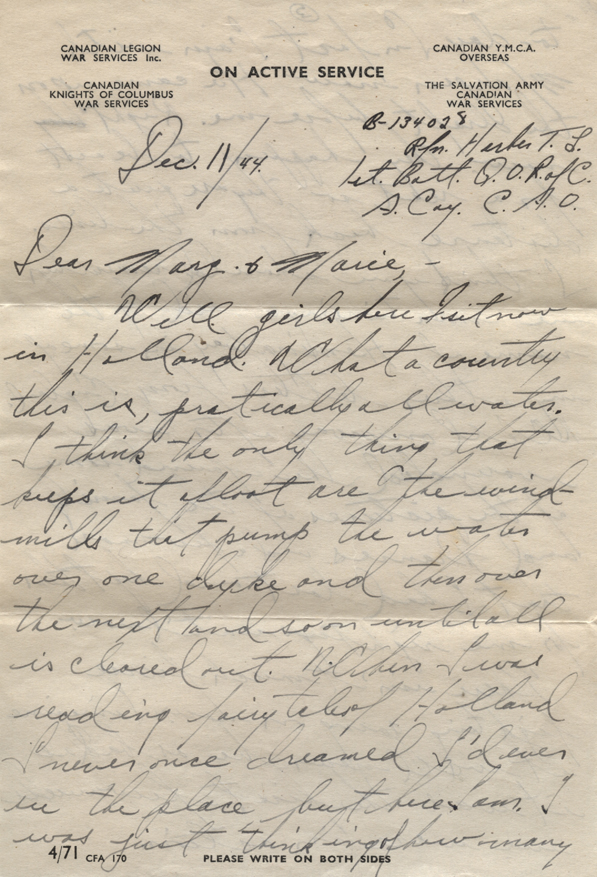 CANADIAN LEGION
WAR SERVICES Inc.
CANADIAN
KNIGHTS OF COLUMBUS
WAR SERVICES
ON ACTIVE SERVICE
CANADIAN Y.M.C.A.
OVERSEAS
THE SALVATION ARMY
CANADIAN
WAR SERVICES
Dec. 11/44.
B-134028
Rfn. Herber T. S.
1st. Batt. Q.O.R. of C.
A. Coy. C. A. O.
Dear Marg. & Marie, -
Well girls here I sit now
in Holland. What a country
this is, pratically all water.
I think the only thing that
keeps it afloat are the wind-
mills that pump the water
over one dyke and then over
the next and so on until all
is cleared out. When I was
reading fairy tales of Holland
I never once dreamed I'd ever
see the place but here I am. I
was just thinking of how many
4/71 CFA 170
PLEASE WRITE ON BOTH SIDES